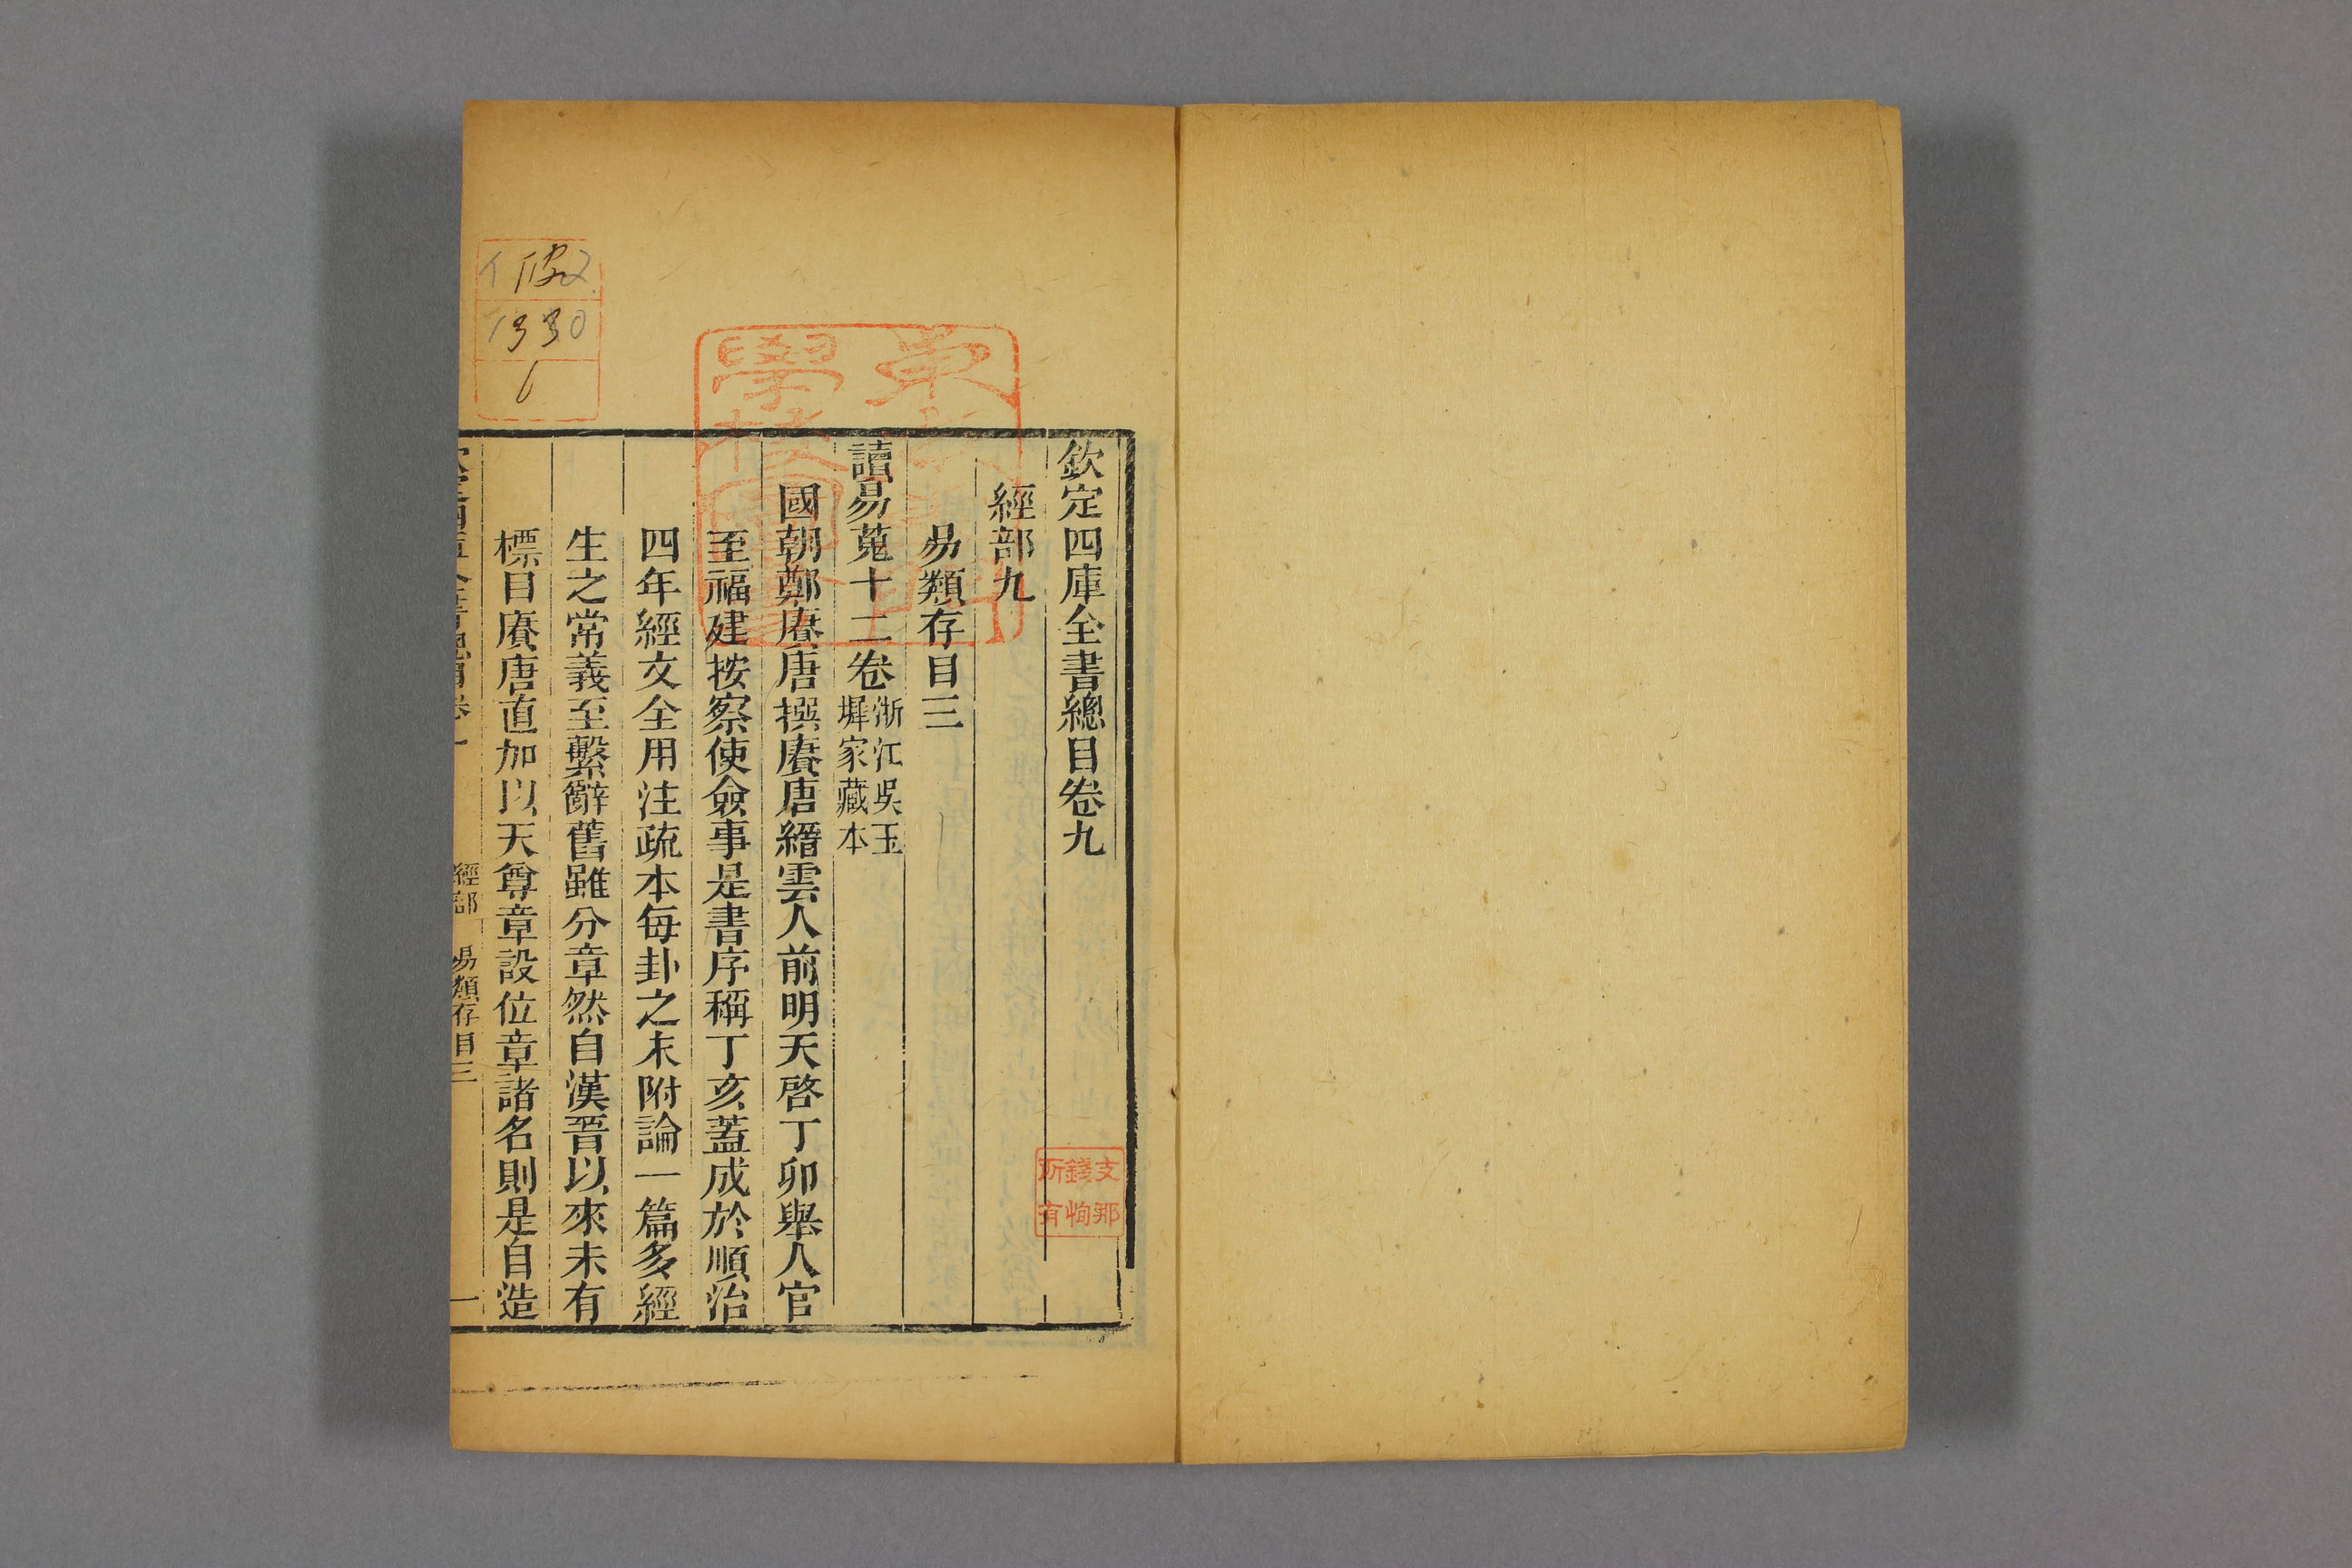 欽定四庫全書總目卷九
經部九
易類存目三
讀易蒐十二卷
浙江吳玉
墀家藏本
國朝鄭賡唐撰賡唐縉雲人前明天啓丁卯舉人官
至福建按察使僉事是書序稱丁亥蓋成於順治
四年經文全用注疏本每卦之末附論一篇多經
生之常義至繫辭舊雖分章然自漢晉以來未有
標目賡唐直加以天尊章設位章諸名則是自造
經部 易類存目三
一
支那
錢恂
所有
1330
6